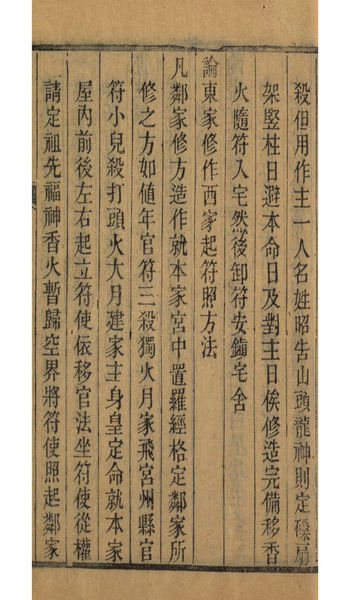 殺但用作主一人名姓昭告山頭龍神則定磉扇
架竪柱日避本命日及對主日俟修造完備移香
火隨符入宅然後卸符安鎮宅舍
論東家修作西家起符照方法
凡鄰家修方造作就本家宮中置羅經格定鄰家所
修之方如値年官符三殺獨火月家飛宮州縣官
符小兒殺打頭火大月建家主身皇定命就本家
屋內前後左右起立符使依移官法坐符使從權
請定祖先福神香火暫歸空界將符使照起鄰家